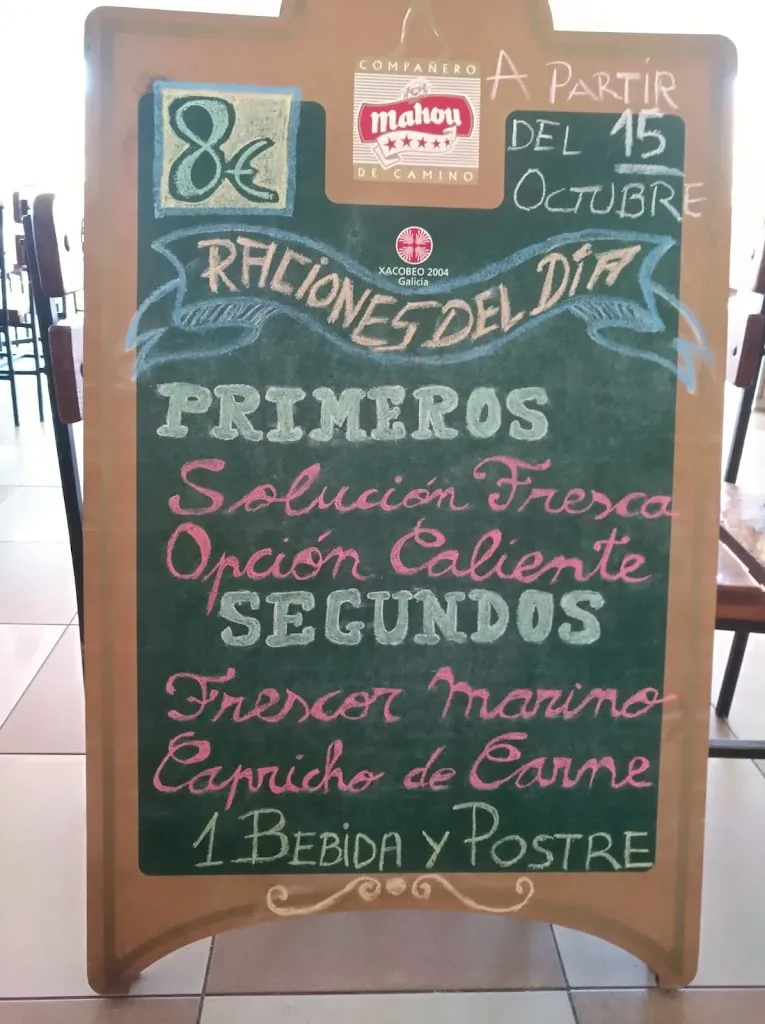 8€
COMPAÑERO
Mahou
DE CAMINO
A PARTIR
DEL 15
OCTUBRE
XACOBEO 2004
Galicia
RACIONES DEL DÍA
PRIMEROS
Solución Fresca
Opción Caliente
SEGUNDOS
Frescor Marino
Capricho de Carne
1 BEBIDA Y POSTRE